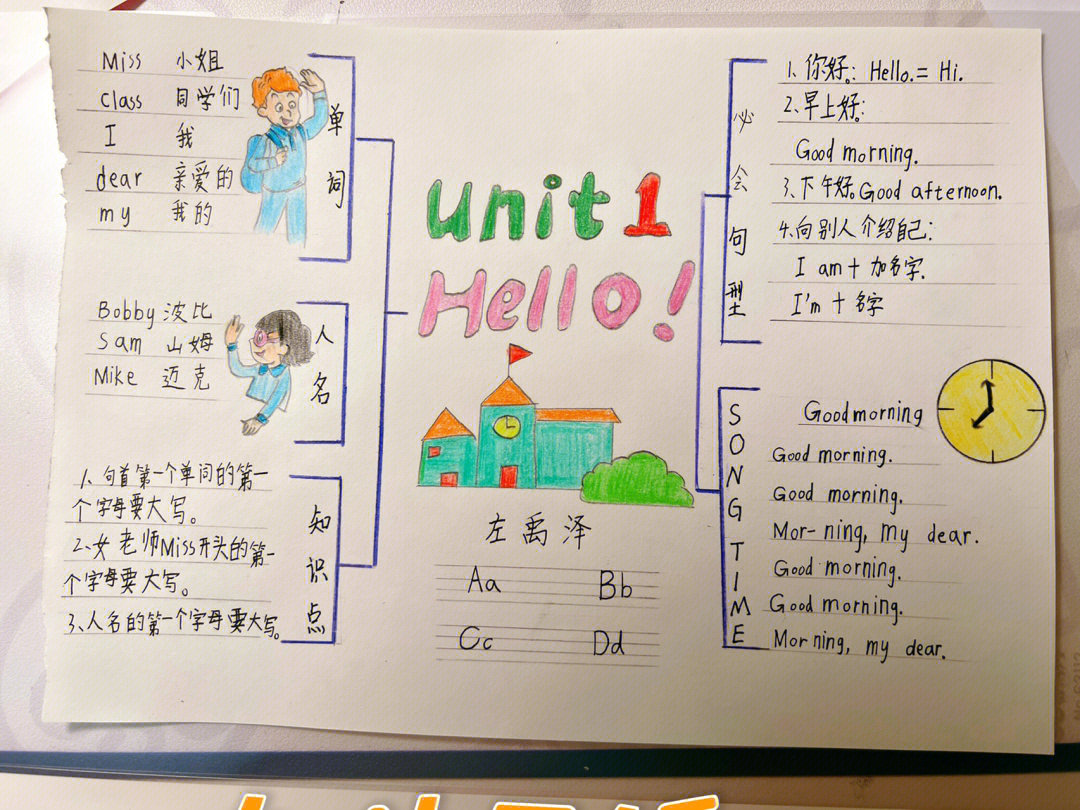 Miss 小姐
class 同学们
I 我
dear 亲爱的
my 我的
单词
Bobby 波比
Sam 山姆
Mike 迈克
人名
1、句首第一个单词的第一
个字母要大写。
2、女老师Miss开头的第一
个字母要大写。
3、人名的第一个字母要大写。
知识点
unit 1
Hello!
左禹泽
Aa Bb
Cc Dd
1、你好: Hello. = Hi.
2、早上好:
Good morning.
3、下午好。Good afternoon.
4、向别人介绍自己:
I am + 加名字.
I'm + 名字
必会句型
SONG TIME
Good morning
Good morning.
Good morning.
Mor-ning, my dear.
Good morning.
Good morning.
Morning, my dear.